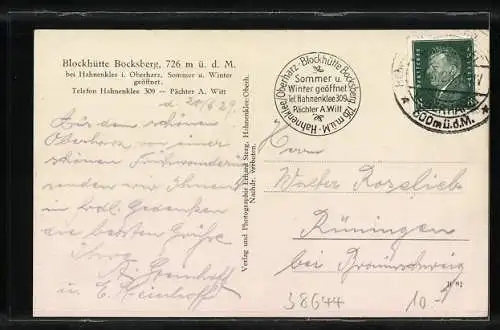 Blockhütte Bocksberg, 726 m ü. d. M.
bei Hahnenklee i. Oberharz. Sommer u. Winter
geöffnet.
Telefon Hahnenklee 309 — Pächter A. Witt
d. 20/6 29.
Aus dem schönen
Oberharz von einer
schönen
senden wir Ihnen
in frdl. Gedenken
die besten Grüße
Ihre
u. E.
Verlag und Photographie Erhard Steeg, Hahnenklee-Oberh.
Nachdr. verboten.
Hahnenklee/Oberharz - Blockhütte Bocksberg 726 m ü. M.
Sommer u.
Winter geöffnet
Tel. Hahnenklee 309
Pächter A. Witt
600 m ü. d. M.
Herrn
Walter
Rüningen
bei Braunschweig
38644
10.-